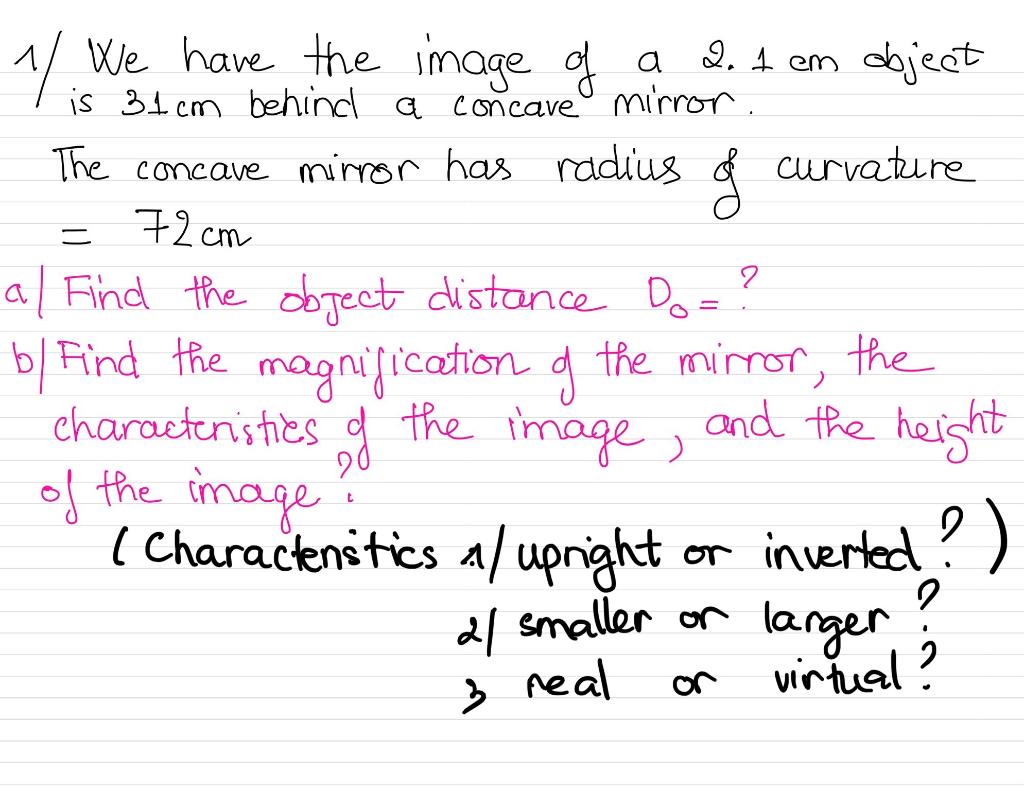 1/ We have the image of a 2.1 cm object
is 31cm behind a concave mirror.
The concave mirror has radius of curvature
= 72cm
a/ Find the object distance Do = ?
b/ Find the magnification of the mirror, the
characteristics of the image, and the height
of the image?
(Characteristics 1/ upright or inverted?)
2/ smaller or larger?
3 real or virtual?